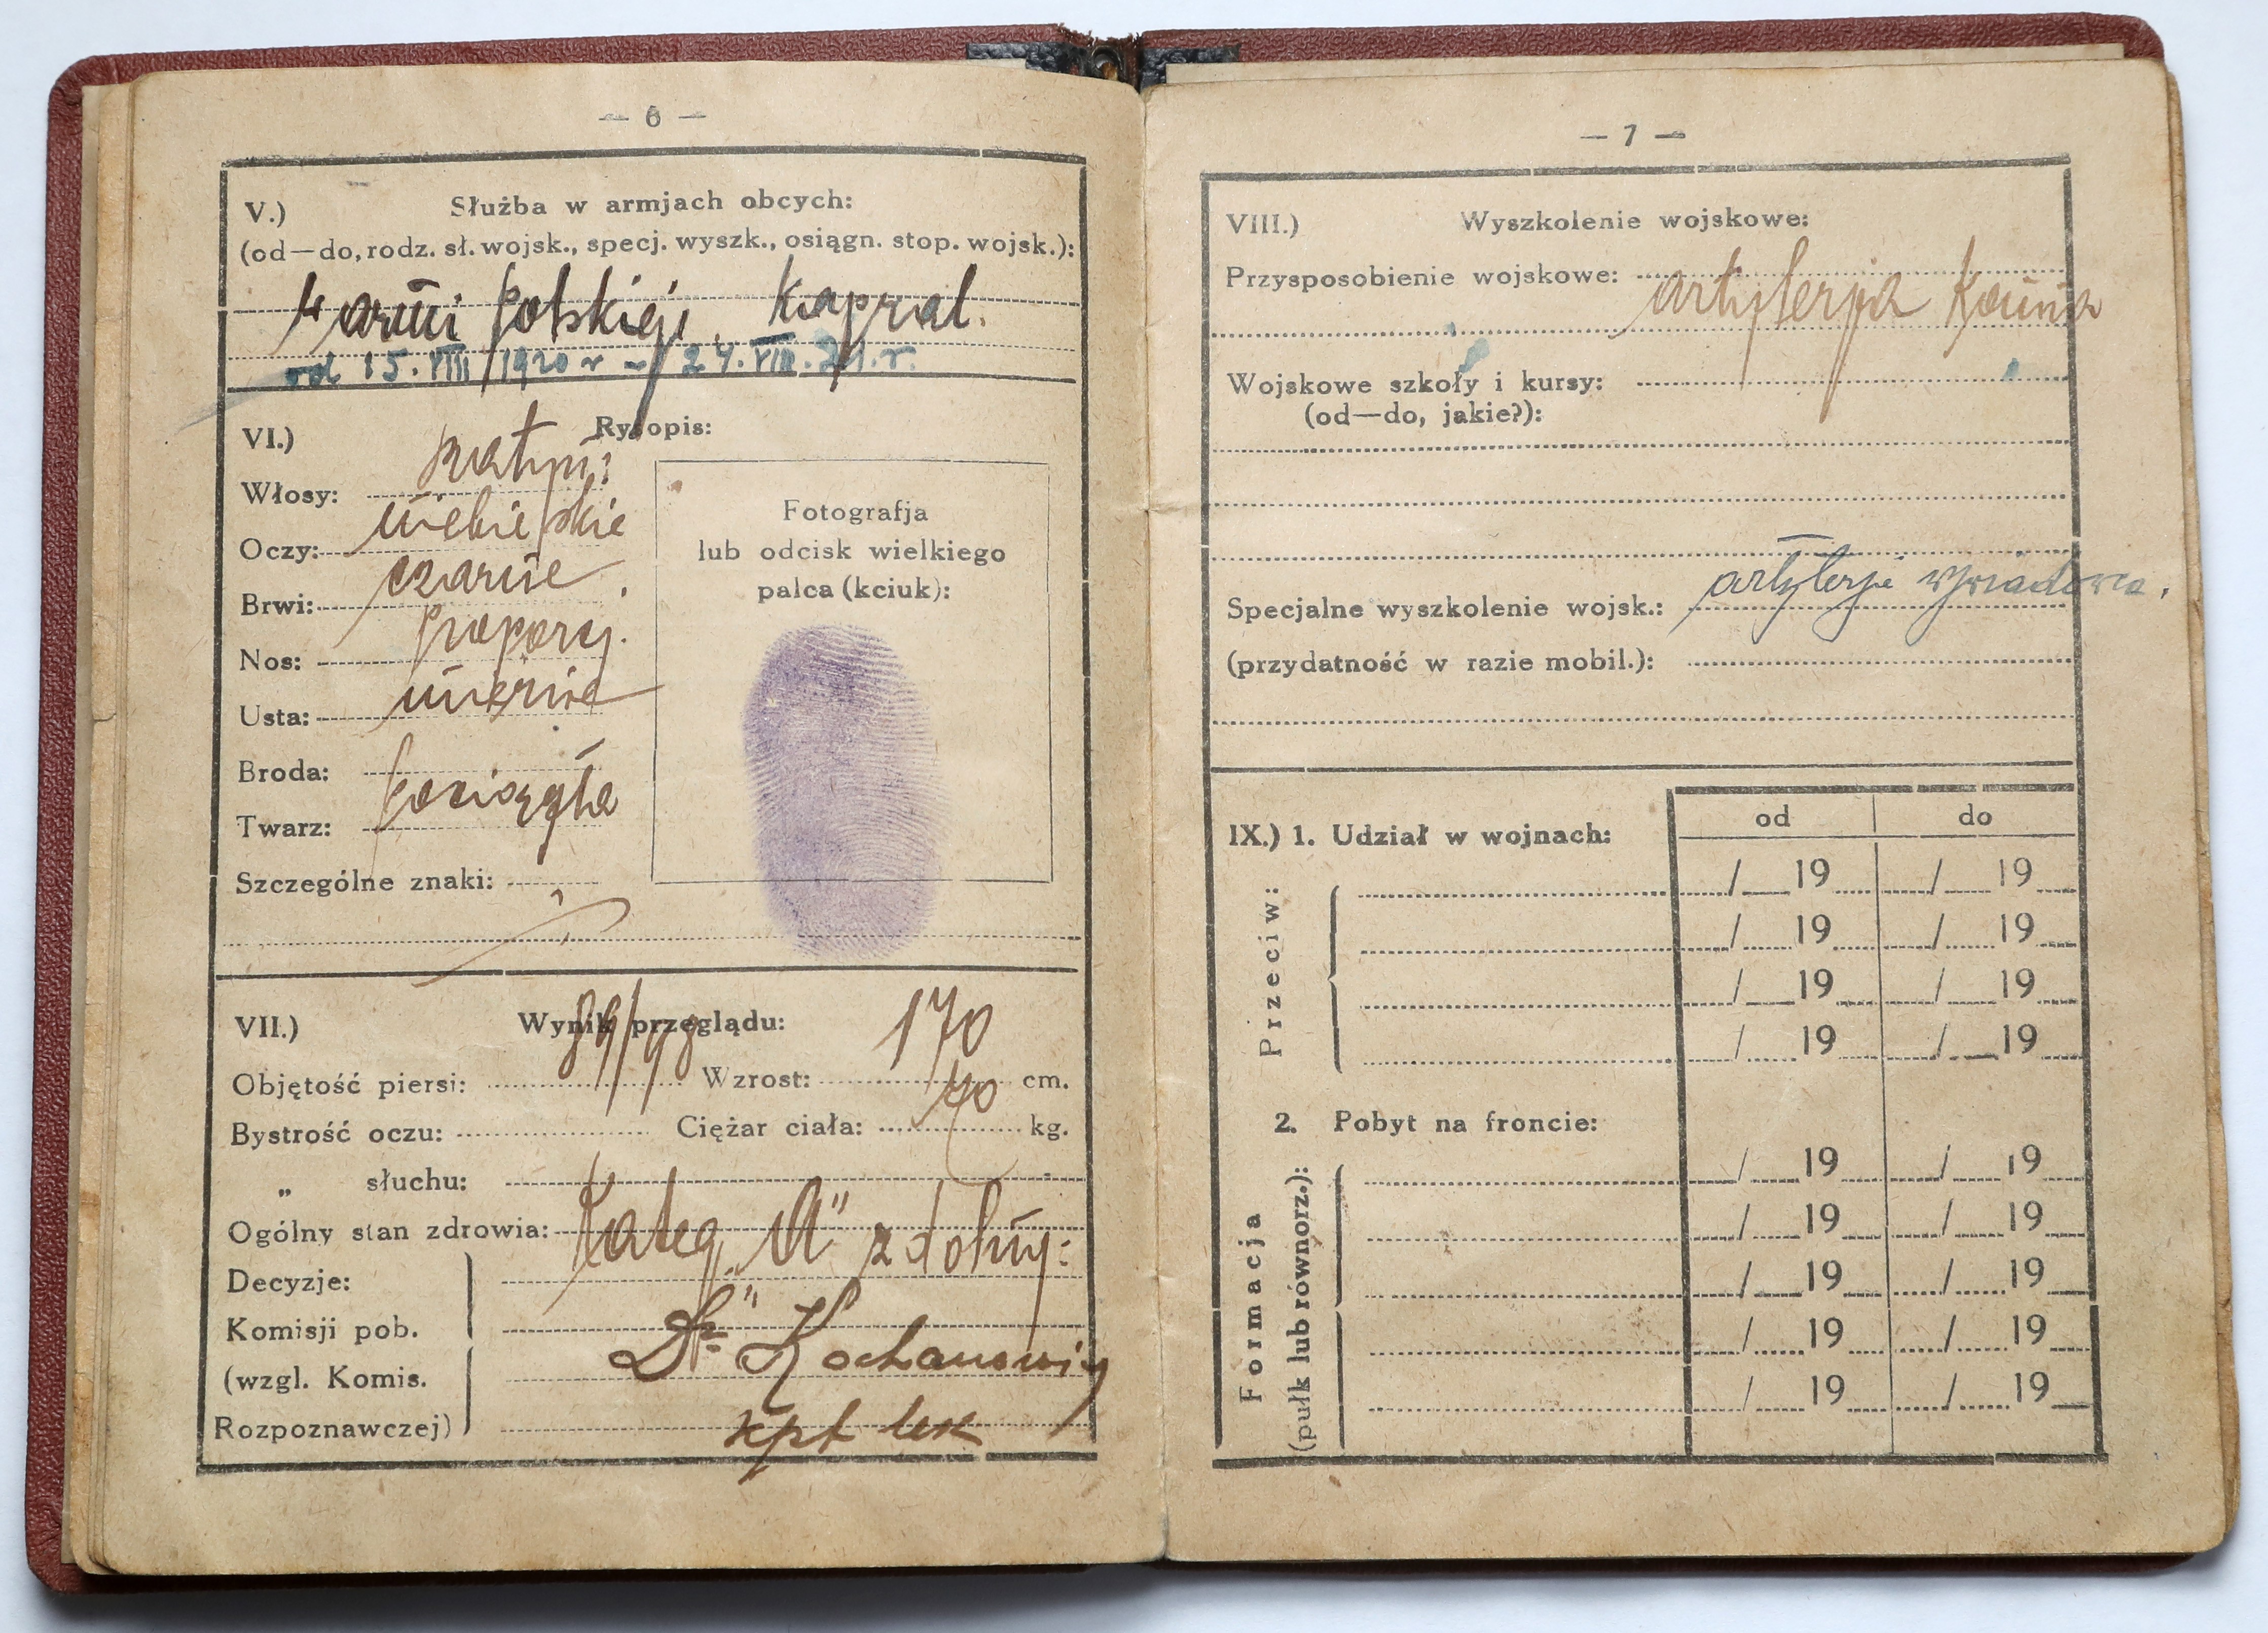 — 6 —
V.) Służba w armjach obcych:
(od—do, rodz. sł. wojsk., specj. wyszk., osiągn. stop. wojsk.):
armii polskiej Kapral.
od 15. VIII 1920 r – 24. VIII. 21. r.
VI.) Rysopis:
Włosy: szatyn:
Oczy: niebieskie
Brwi: czarne.
Nos: proporcj.
Usta: mierne
Broda:
Twarz: pociągła
Szczególne znaki:
Fotografja
lub odcisk wielkiego
palca (kciuk):
VII.) Wynik przeglądu:
Objętość piersi: 89/98 Wzrost: 170 cm.
Bystrość oczu: Ciężar ciała: 70 kg.
„ słuchu:
Ogólny stan zdrowia: Kateg. „A" zdolny:
Decyzje:
Komisji pob.
(wzgl. Komis.
Rozpoznawczej)
Dr Kochanowicz
kpt lek
— 7 —
VIII.) Wyszkolenie wojskowe:
Przysposobienie wojskowe: artylerja konna
Wojskowe szkoły i kursy:
(od—do, jakie?):
Specjalne wyszkolenie wojsk.: artylerji wywiadowca.
(przydatność w razie mobil.):
od do
IX.) 1. Udział w wojnach:
Przeciw:
/ 19 / 19
/ 19 / 19
/ 19 / 19
/ 19 / 19
2. Pobyt na froncie:
Formacja
(pułk lub równorz.):
/ 19 / 19
/ 19 / 19
/ 19 / 19
/ 19 / 19
/ 19 / 19